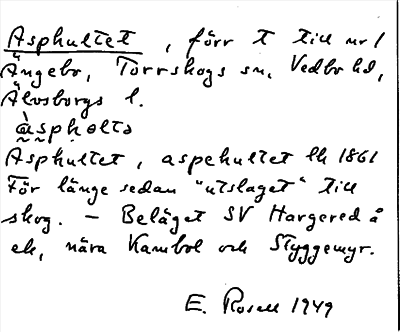 Asphultet, förr t till nr 1
Ängebo, Torrskogs sn, Vedbo hd,
Älvsborgs l.
àsphølta
Asphultet, aspehultet lk 1861
För länge sedan "utslaget" till
skog. – Beläget SV Hargered å
ek, nära Kambol och Styggemyr.
E. Rosell 1949